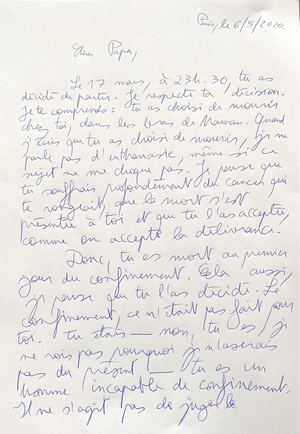 Paris, le 6/5/2020.
Cher Papa,
Le 17 mars, à 23h.30, tu as
décidé de partir. Je respecte ta décision.
Je te comprends : tu as choisi de mourir
chez toi, dans les bras de Maman. Quand
j'écris que tu as choisi de mourir, je ne
parle pas d'euthanasie, même si ce
sujet ne me choque pas. Je pense que
tu souffrais profondément du cancer qui
te rongeait, que la mort s'est
présentée à toi et que tu l'as acceptée,
comme on accepte la délivrance.
Donc, tu es mort au premier
jour du confinement. Cela aussi,
je pense que tu l'as décidé. Le
confinement, ce n'était pas fait pour
toi. Tu étais — non, tu es, je
ne vois pas pourquoi je n'userais
pas du présent — tu es un
homme incapable de confinement.
Il ne s'agit pas de juger le